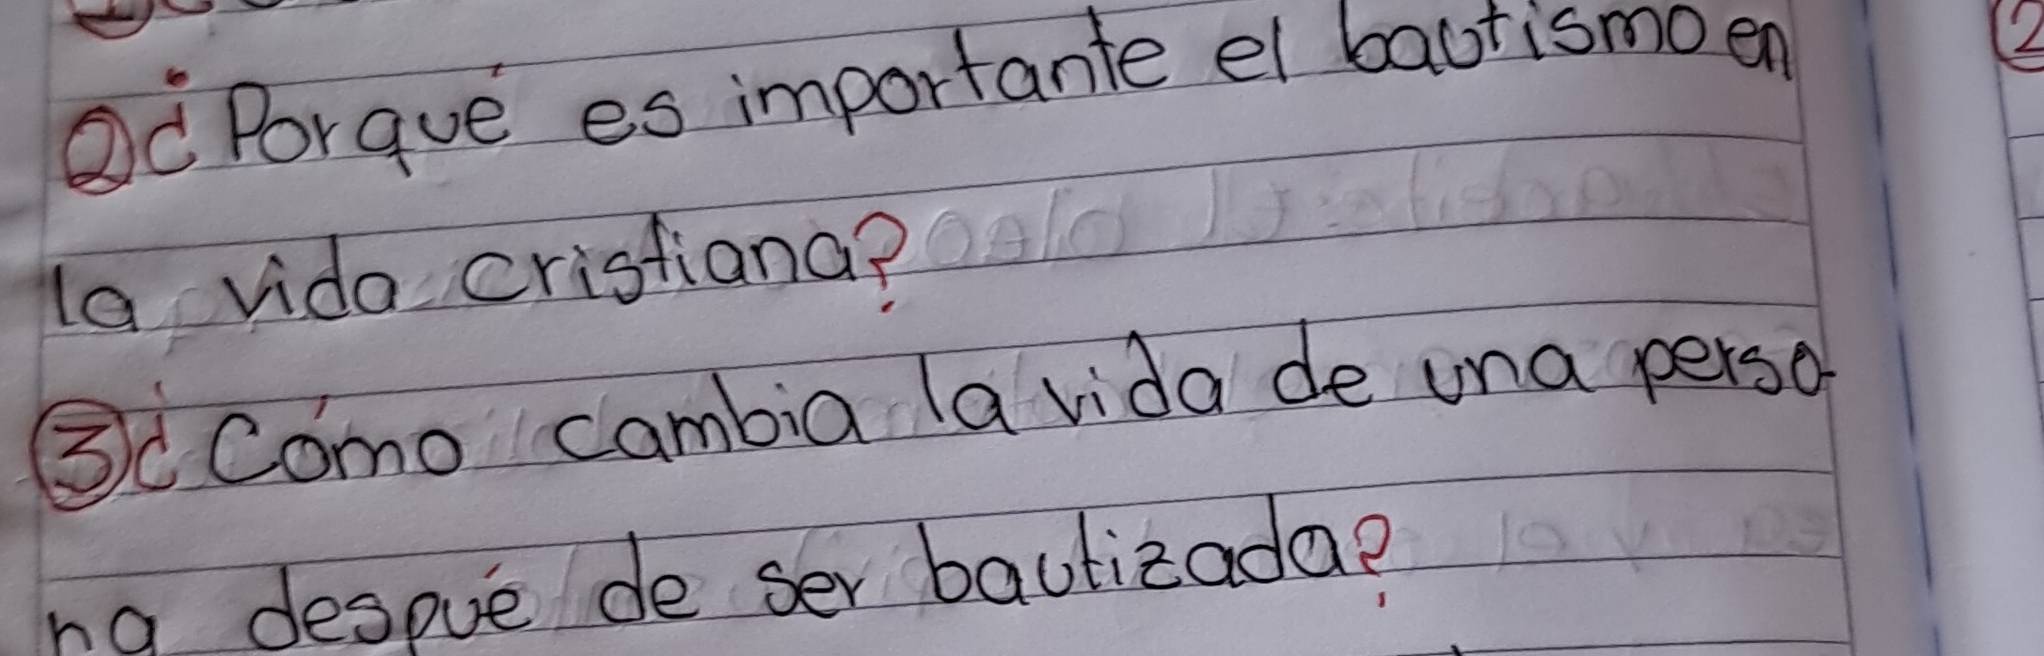 ② ¿Porqué es importante el bautismo en
la vida cristiana?
③ ¿Cómo cambia la vida de una perso
na despué de ser bautizada?
2